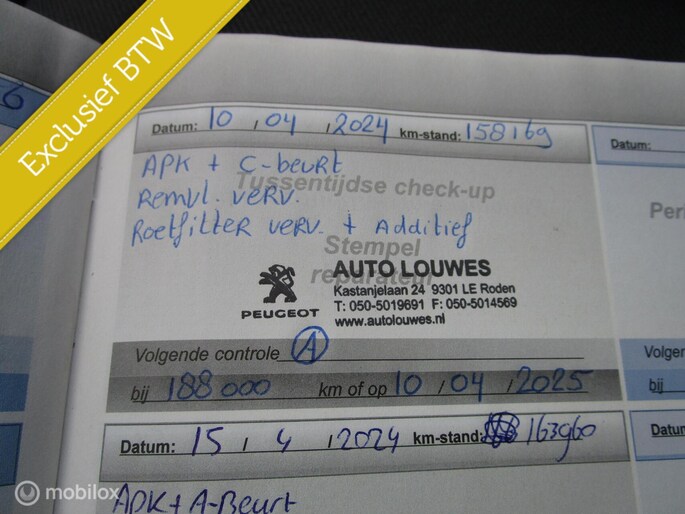 Exclusief BTW
6
Datum: 10 / 04 / 2024 km-stand: 158169
Datum:
APK + C-beurt
Tussentijdse check-up
Remvl. verv.
Roetfilter verv. + Additief
Stempel
reparateur
Peri
AUTO LOUWES
Kastanjelaan 24 9301 LE Roden
T: 050-5019691 F: 050-5014569
www.autolouwes.nl
PEUGEOT
Volgende controle A
Volgen
bij 188000 km of op 10 / 04 / 2025
bij
Datum: 15 / 4 / 2024 km-stand: 163960
Datu
APK + A-Beurt
mobilox